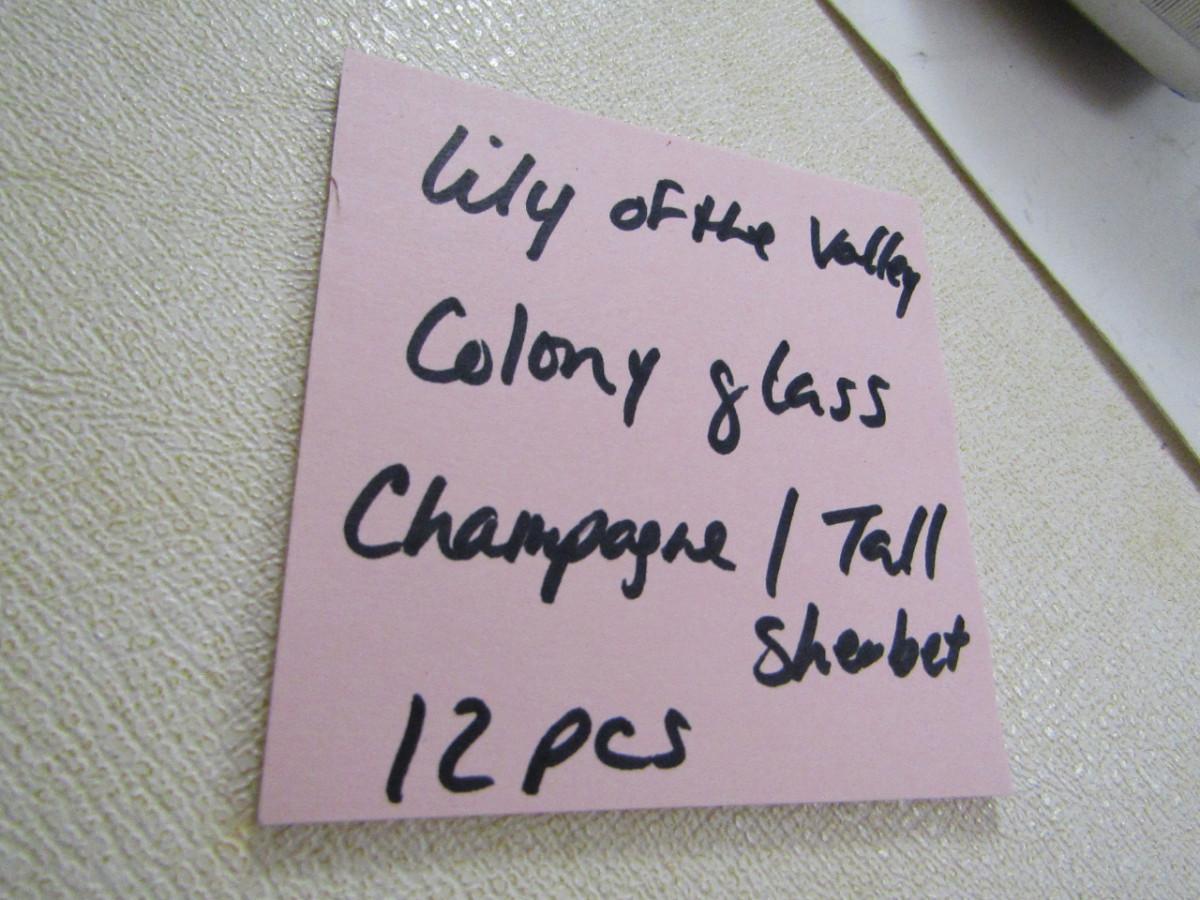 Lily of the Valley
Colony glass
Champagne / Tall
Sherbet
12 pcs